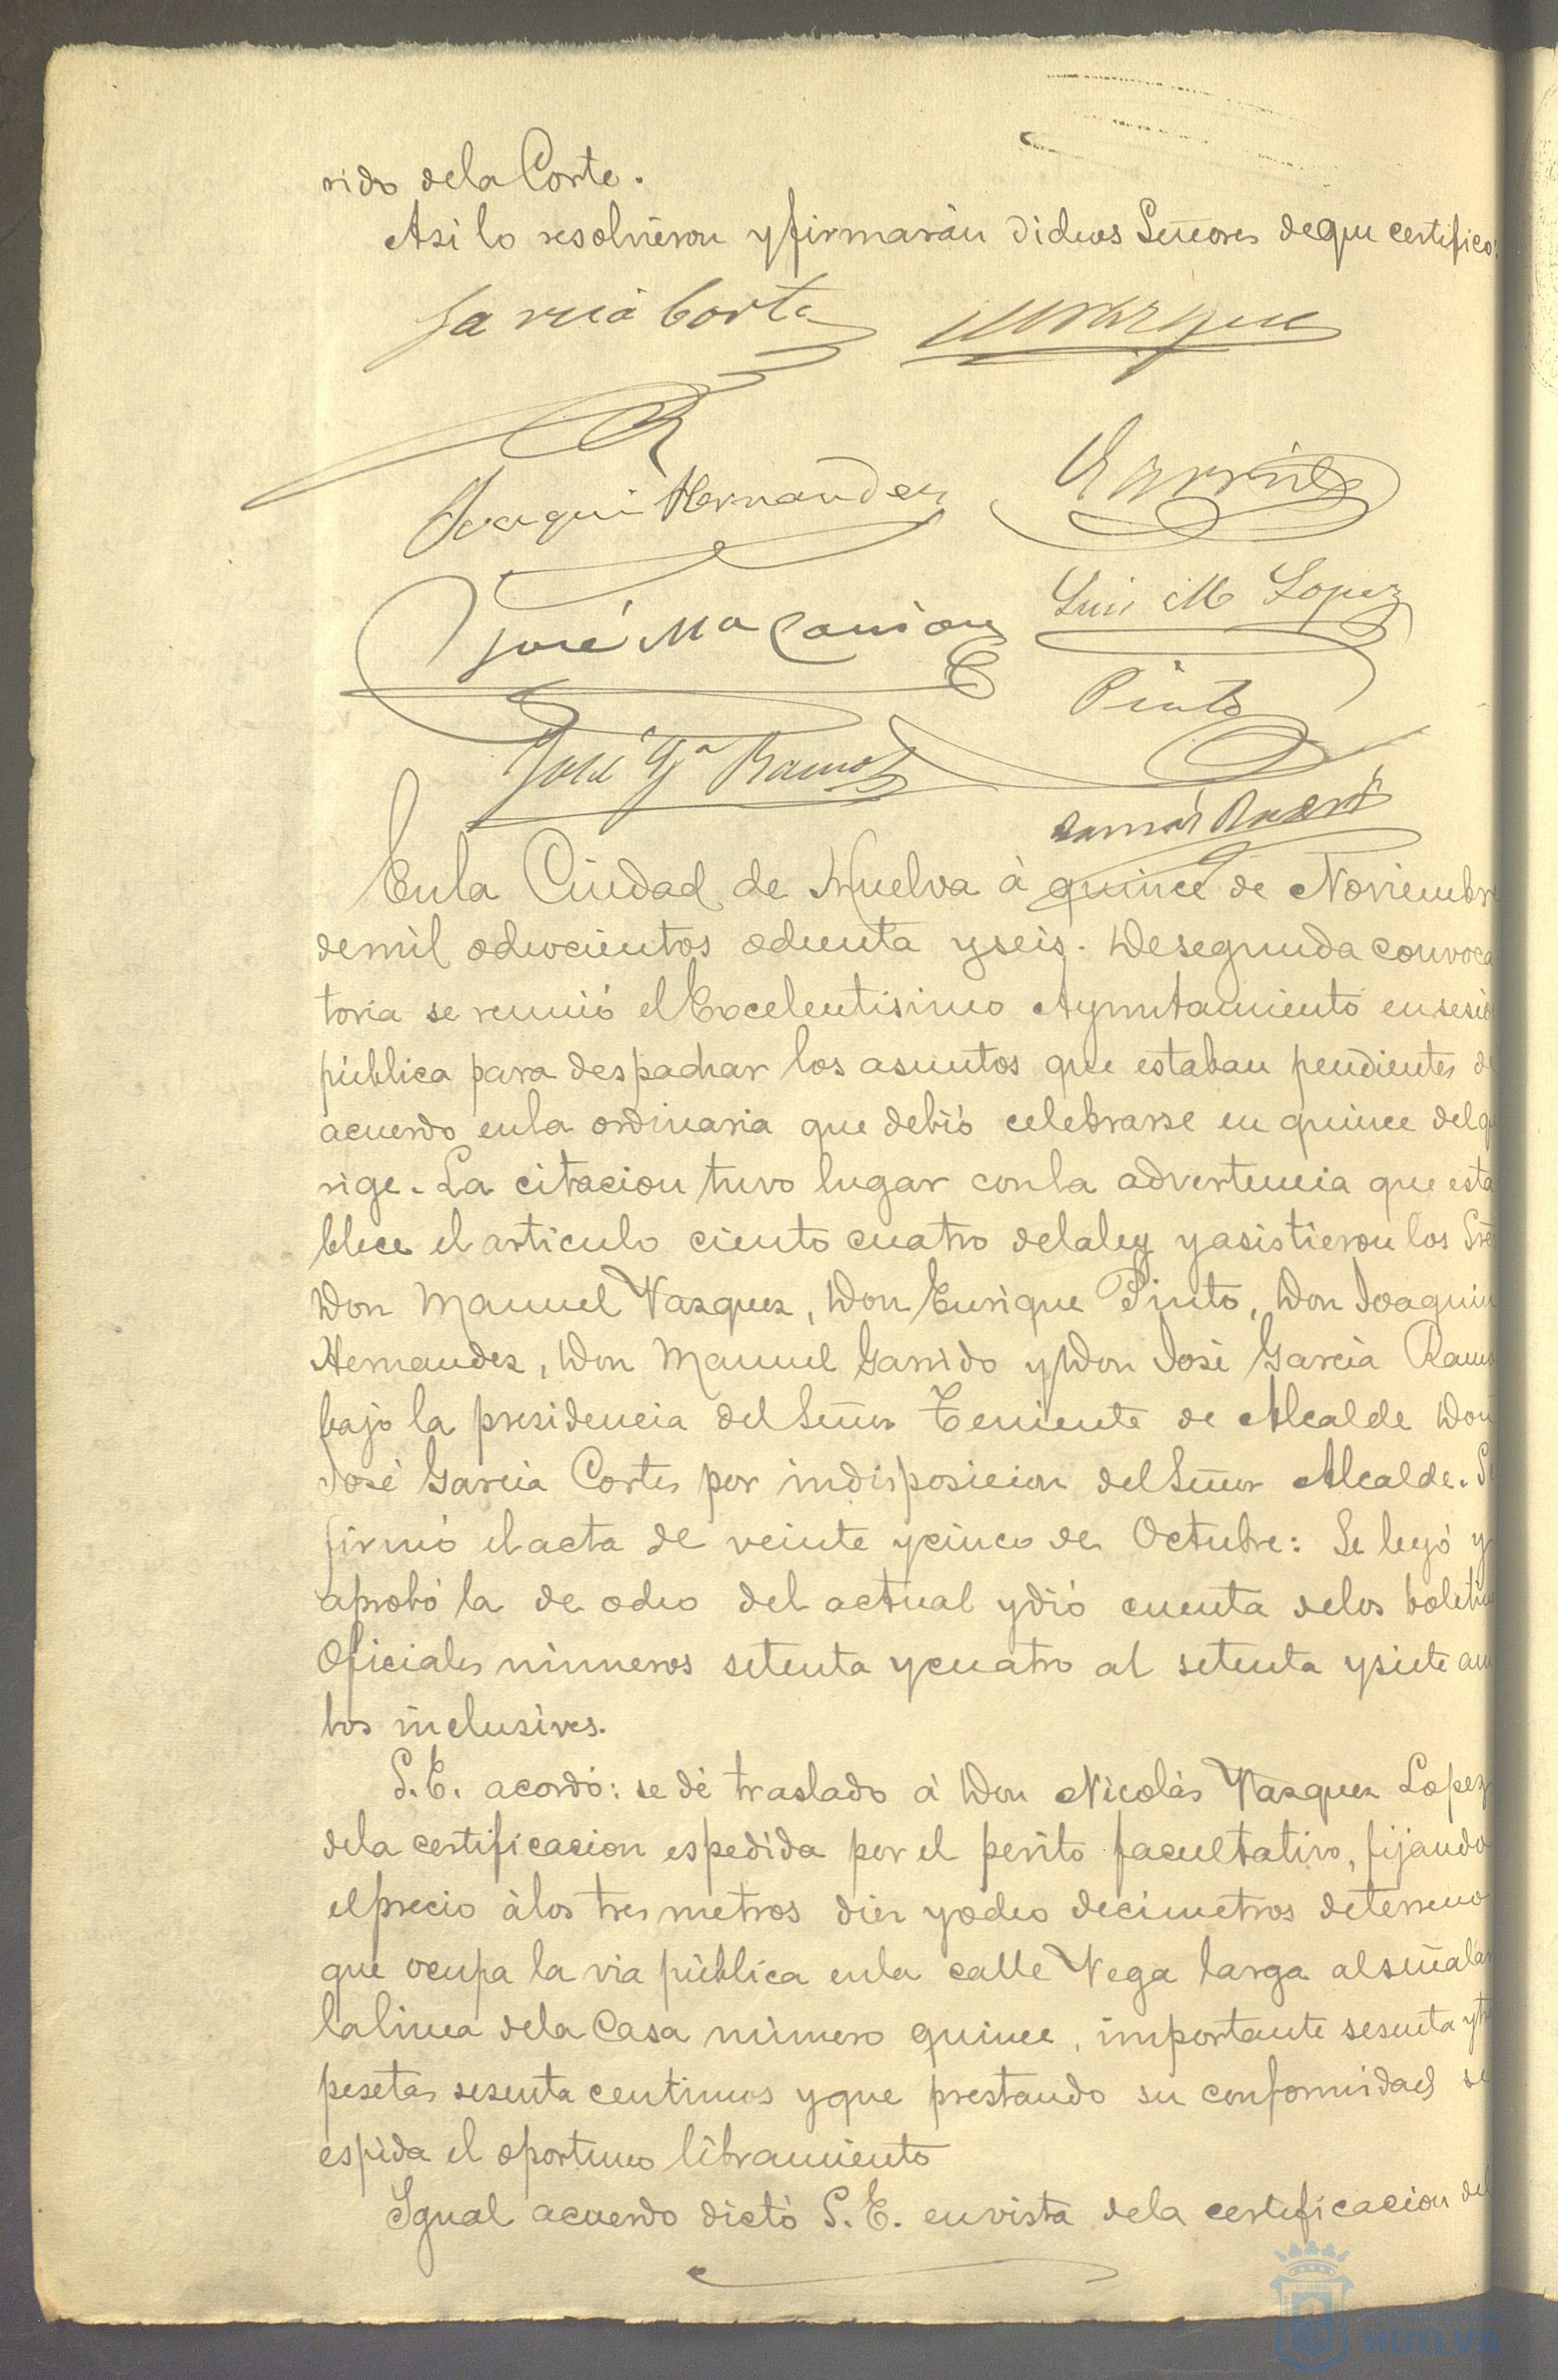 rido dela Corte.
Asi lo resolvieron y firmarán dichos Señores de que certifico.
Garcia Cortes
Joaquin Hernandez
Garrido
José Mª
Luis M Lopez
Pinto
José Gª Ramos
En la Ciudad de Huelva à quince de Noviembre
de mil ochocientos ochenta y seis. De segunda convoca
toria se reunió el Excelentisimo Ayuntamiento en sesió
pùblica para despachar los asuntos que estaban pendientes d
acuerdo en la ordinaria que debió celebrarse en quince del q
rige. La citacion tuvo lugar con la advertencia que esta
blece el articulo ciento cuatro de la ley y asistieron los Sre
Don Manuel Vazquez, Don Enrique Pinto, Don Joaquin
Hernandez, Don Manuel Garrido y Don José Garcia Ramo
bajo la presidencia del Señor Teniente de Alcalde Don
José Garcia Cortes por indisposicion del Señor Alcalde. S
firmó el acta de veinte y cinco de Octubre: Se leyó y
aprobó la de ocho del actual y dió cuenta de los boletin
Oficiales nùmeros setenta y cuatro al setenta y siete am
bos inclusives.
S. E. acordó: se dé traslado à Don Nicolás Vazquez Lopez
de la certificacion espedida por el perito facultativo, fijando
el precio à los tres metros diez y ocho decimetros de terreno
que ocupa la via pùblica en la calle Vega larga al señalar
la linea de la Casa nùmero quince, importante sesenta y tr
pesetas sesenta centimos y que prestando su conformidad se
espida el oportuno libramiento
Igual acuerdo dictó S. E. en vista de la certificacion del
HUELVA